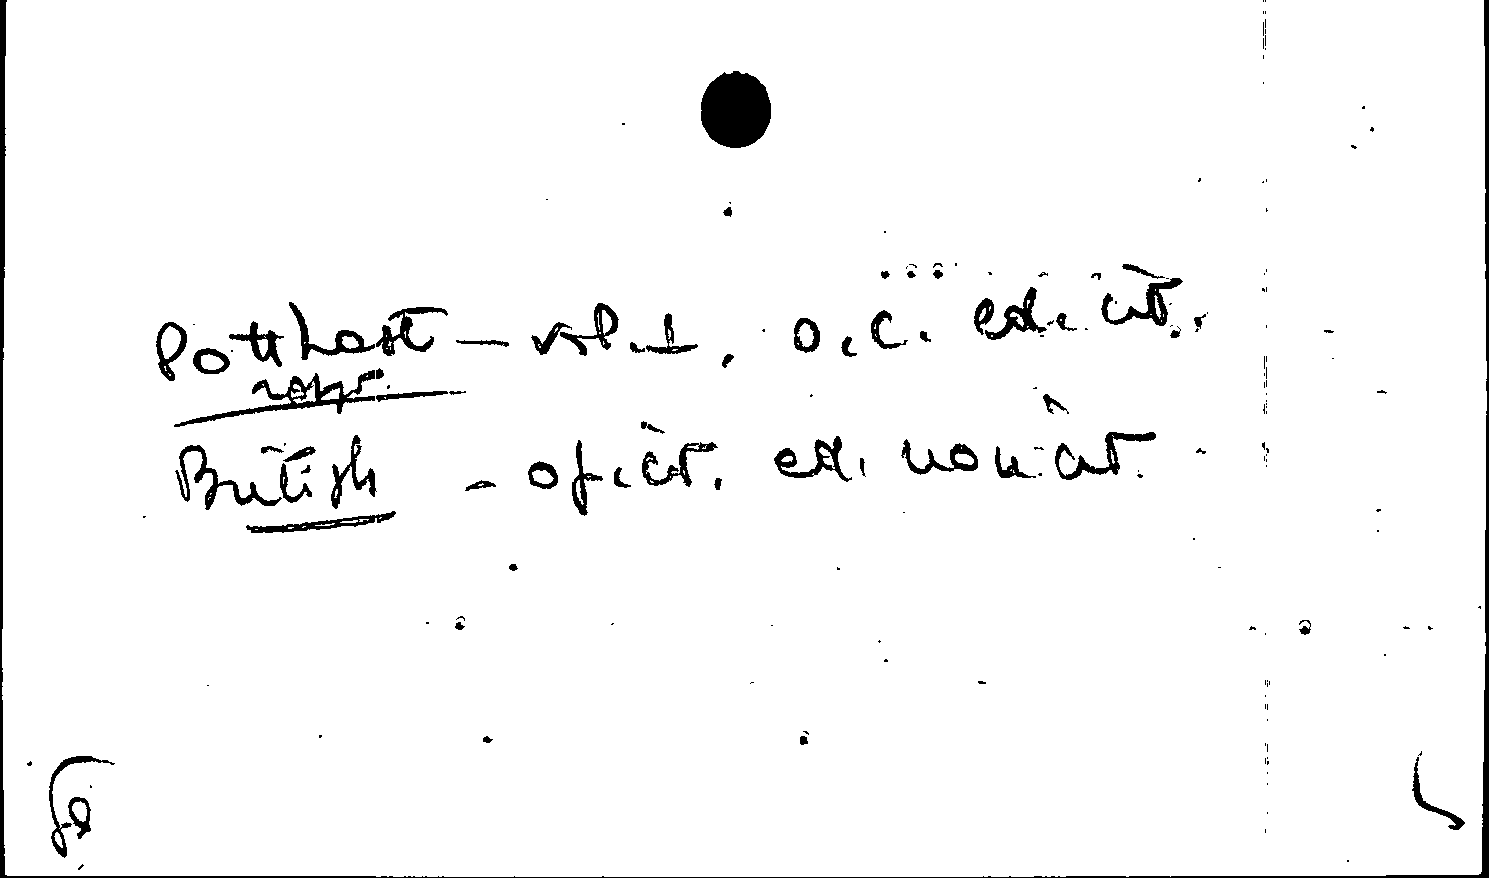 Potthast — vol. 1, o.c. ed. cit.
British - op. cit. ed. non cit.